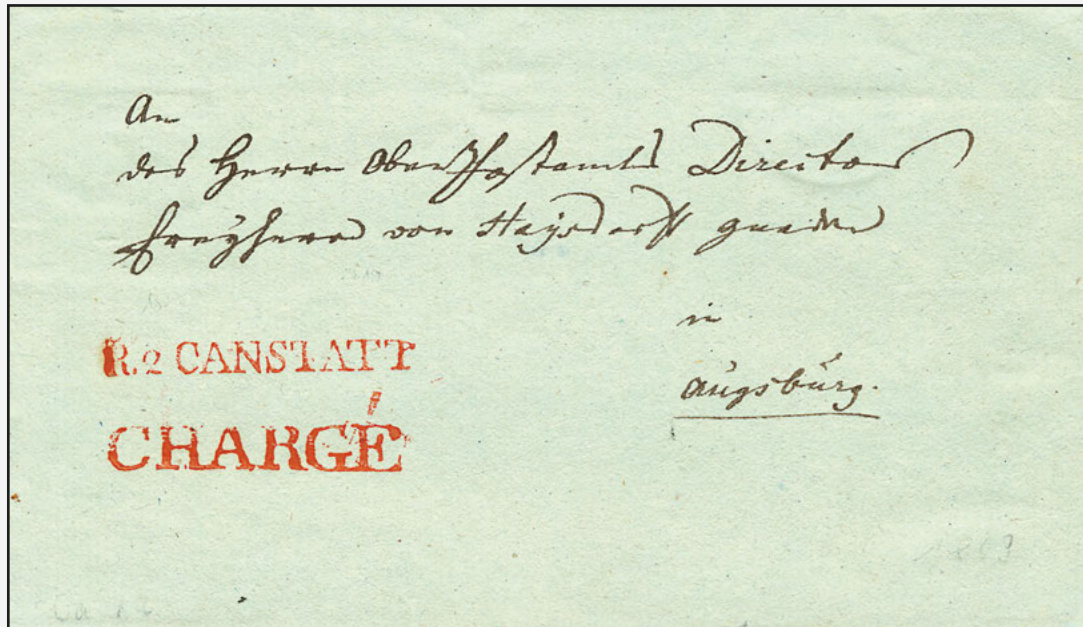 An
des Herrn OberPostamts Director
Freyherrn von Haysdorff gnaden
in
Augsburg.
R.2 CANSTATT
CHARGÉ